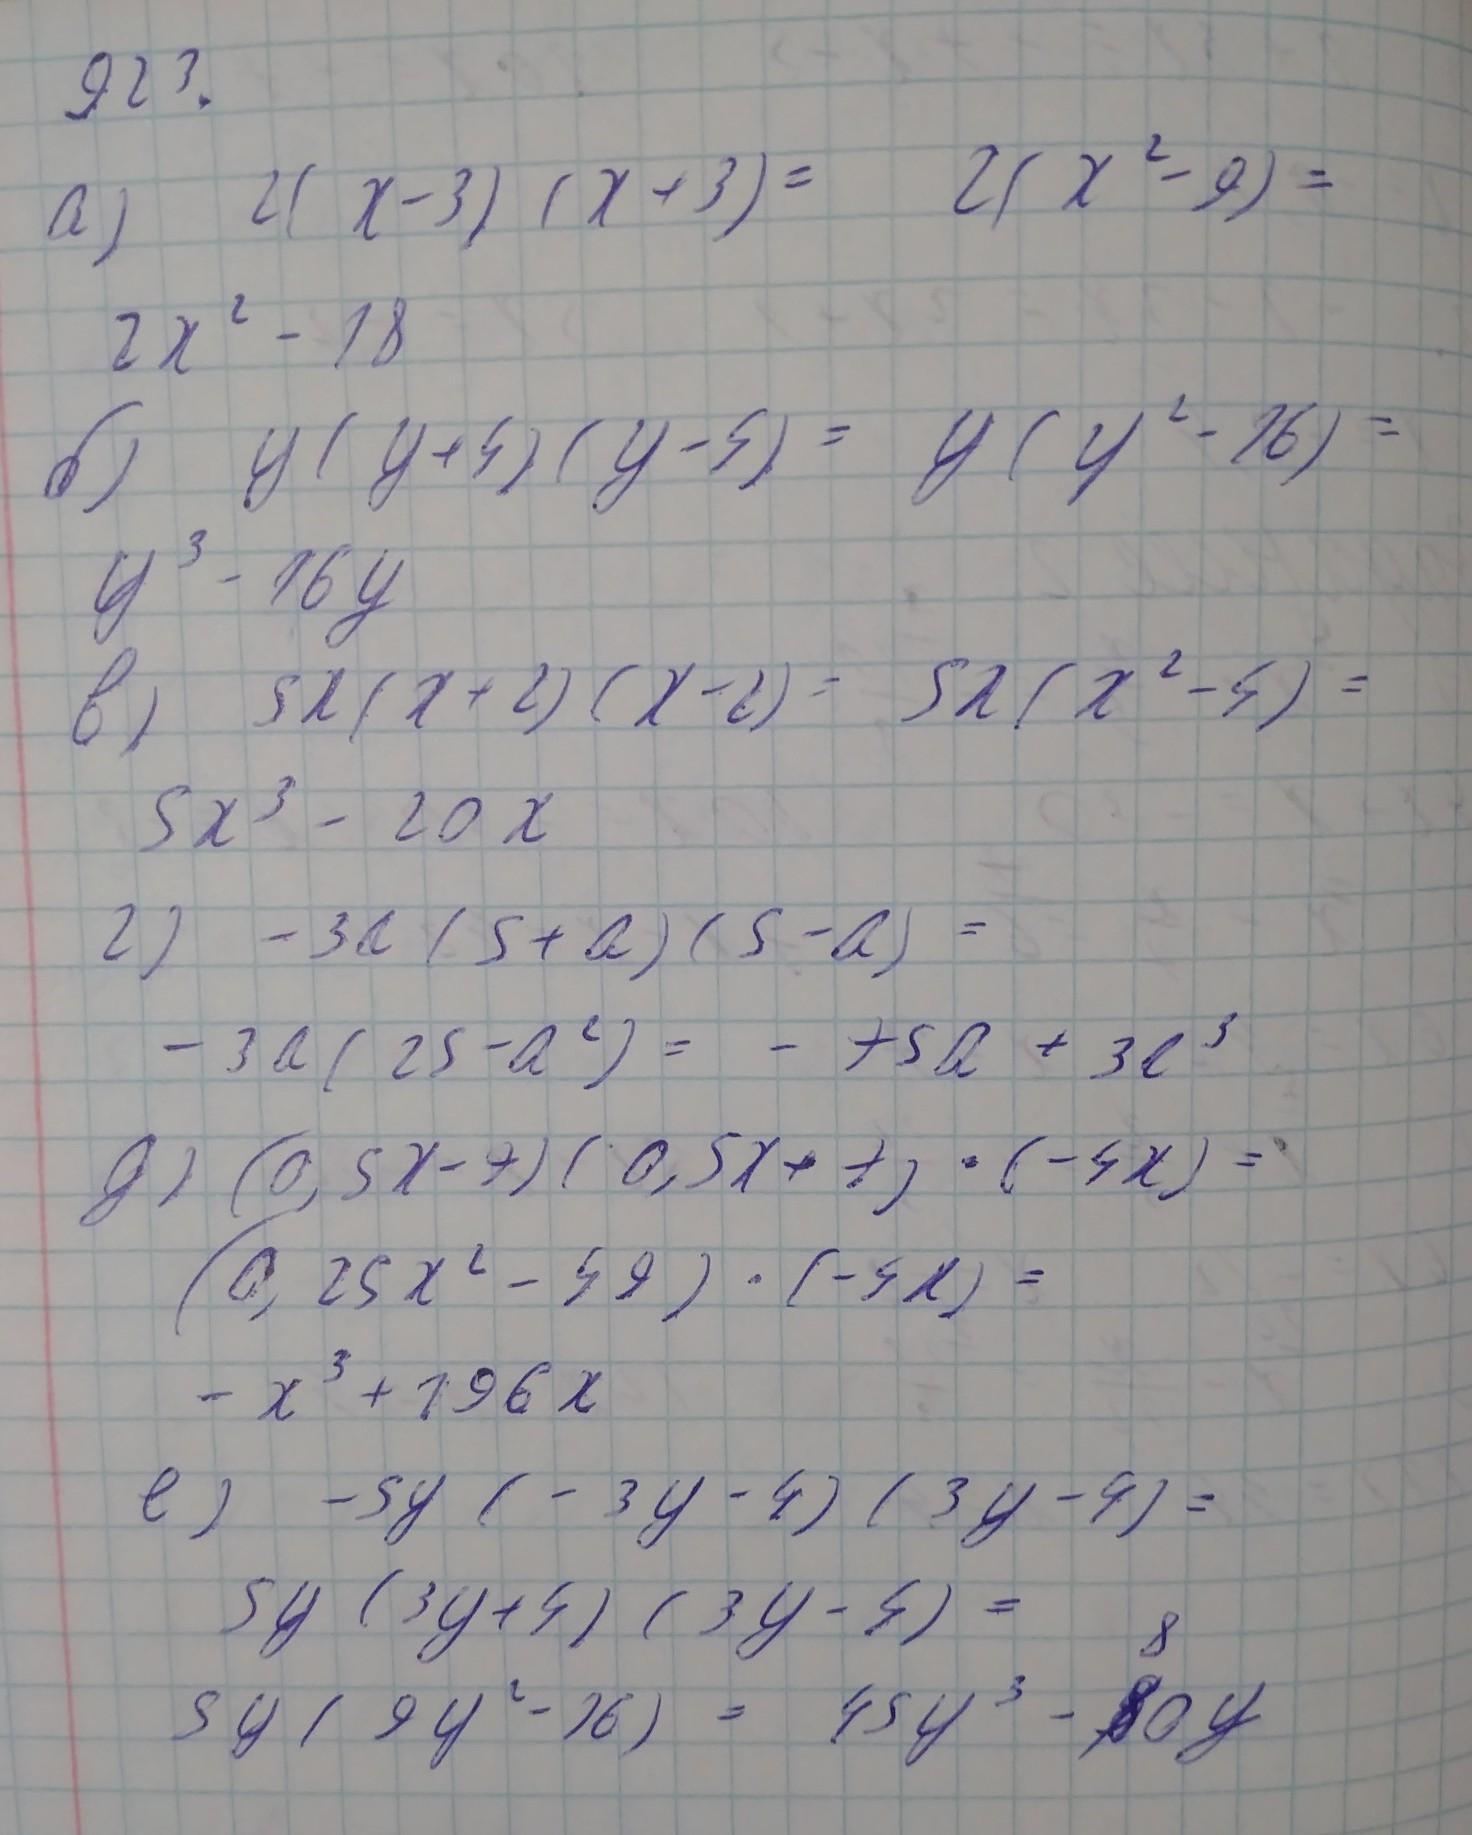 923.
а) 2(x-3)(x+3)= 2(x²-9)=
2x²-18
б) y(y+4)(y-4)= y(y²-16)=
y³-16y
в) 5x(x+2)(x-2)= 5x(x²-4)=
5x³-20x
г) -3a(5+a)(5-a)=
-3a(25-a²)= -75a+3a³
д) (0,5x-7)(0,5x+7)·(-4x)=
(0,25x²-49)·(-4x)=
-x³+196x
е) -5y(-3y-4)(3y-4)=
5y(3y+4)(3y-4)=
5y(9y²-16)= 45y³-80y